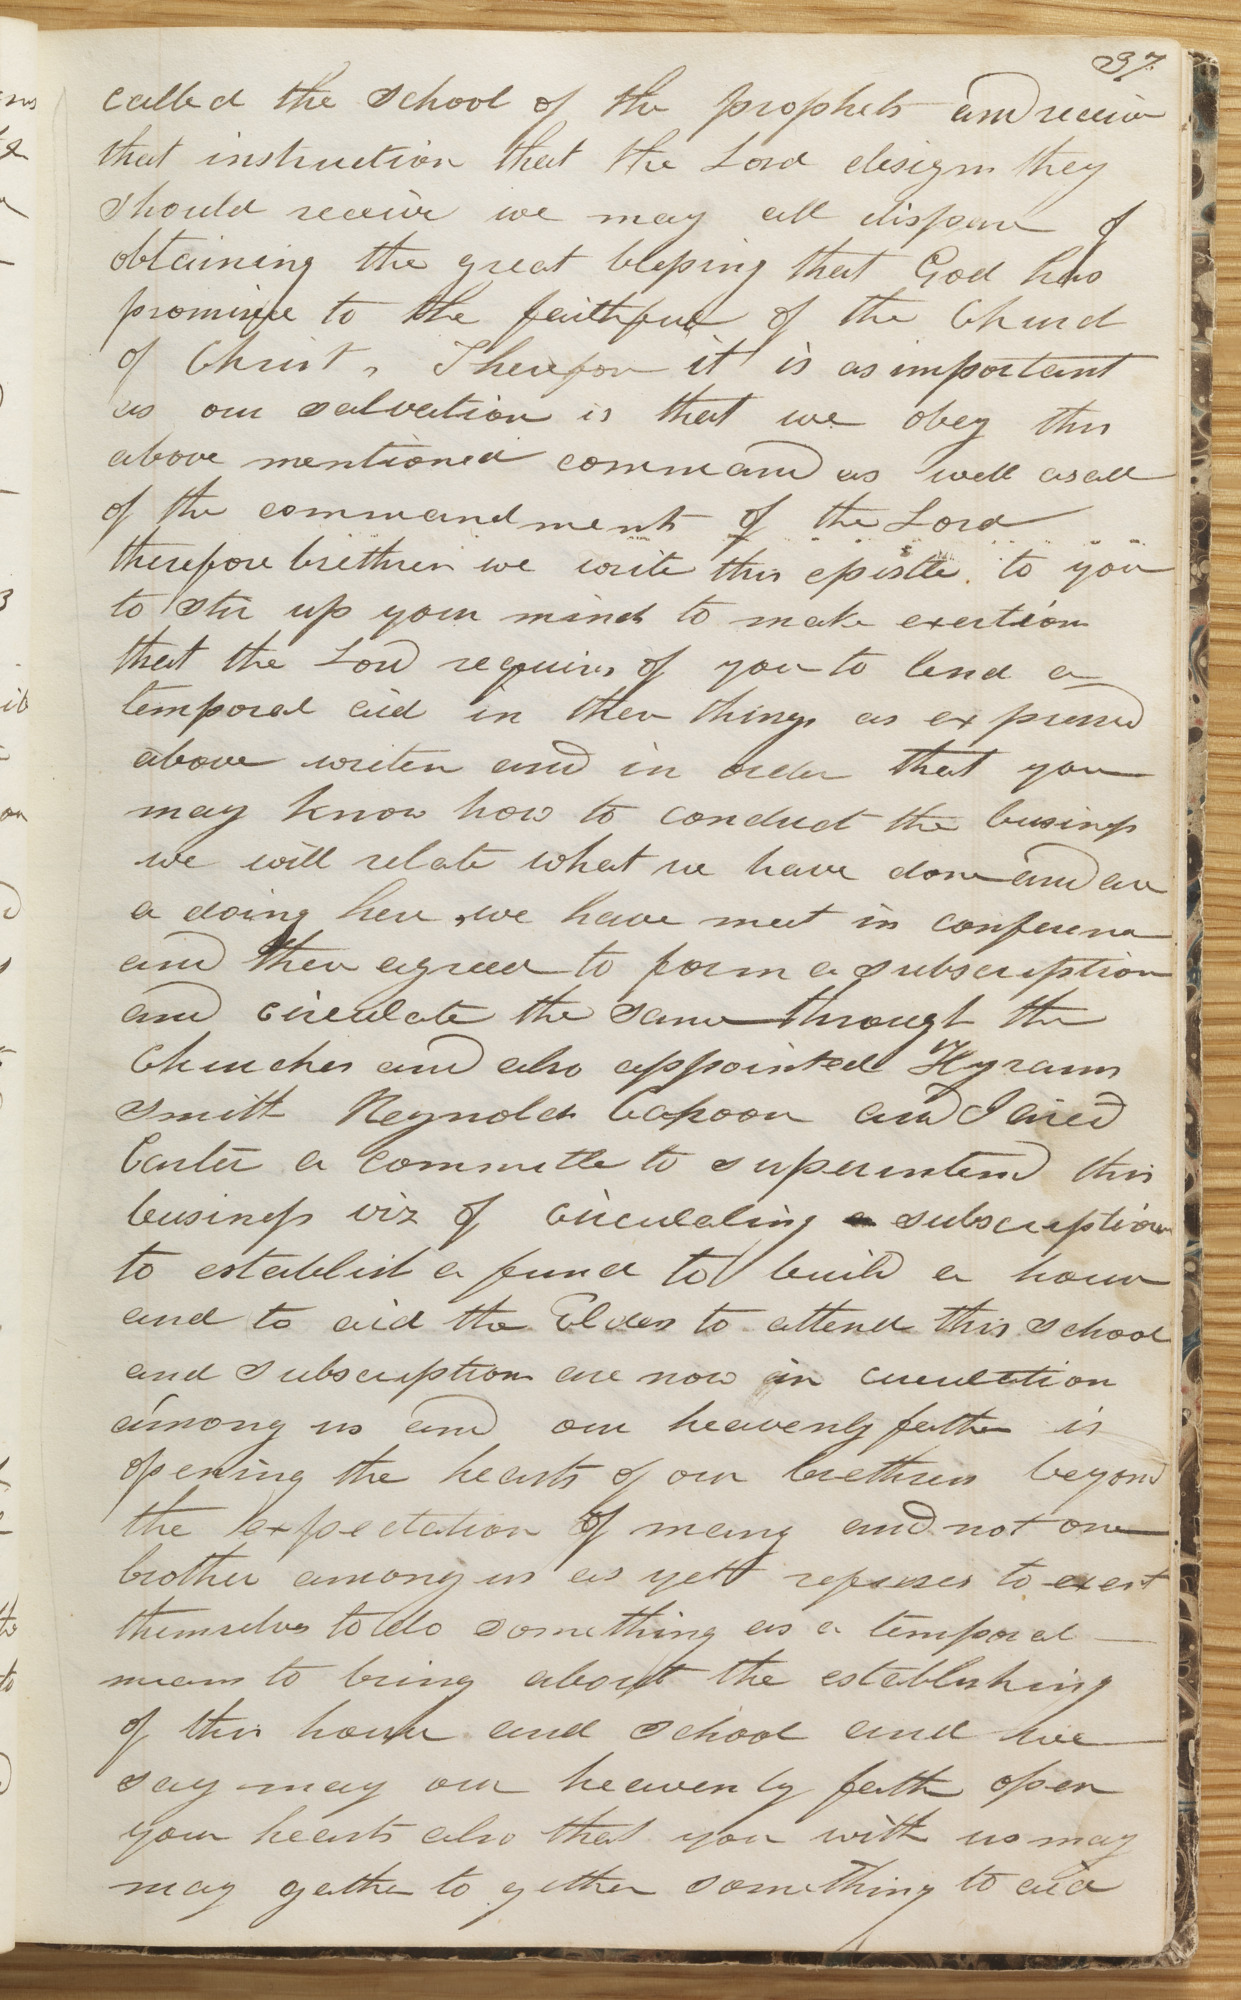 37.
called the school of the prophets and receive
that instruction that the Lord designs they
should receive we may all dispare of
obtaining the great blessing that God has
promise to the faithful of the Church
of Christ, Therefore it is as important
as our salvation is that we obey this
above mentioned command as well as all
of the commandments of the Lord
therefore brethren we write this epistle to you
to stir up your minds to make exertion
that the Lord requires of you to lend a
temporal aid in these things as expressed
above writen and in order that you
may know how to conduct the business
we will relate what we have done and are
a doing here, we have meet in conference
and then agreed to form a subscription
and circulate the same through the
Churches and also appointed Hyram
Smith Reynolds Cahoon and Jared
Carter a committe to superintend this
business viz of circulating a subscription
to establish a fund to build a house
and to aid the Elders to attend this school
and subscriptions are now in curculation
among us and our heavenly father is
opening the hearts of our brethren beyond
the expectation of many and not one
brother among us as yett refuses to exert
themselves to do something as a temporal
means to bring about the establishing
of this house and school and we
say may our heavenly father open
your hearts also that you with us may
may gether to gether something to aid